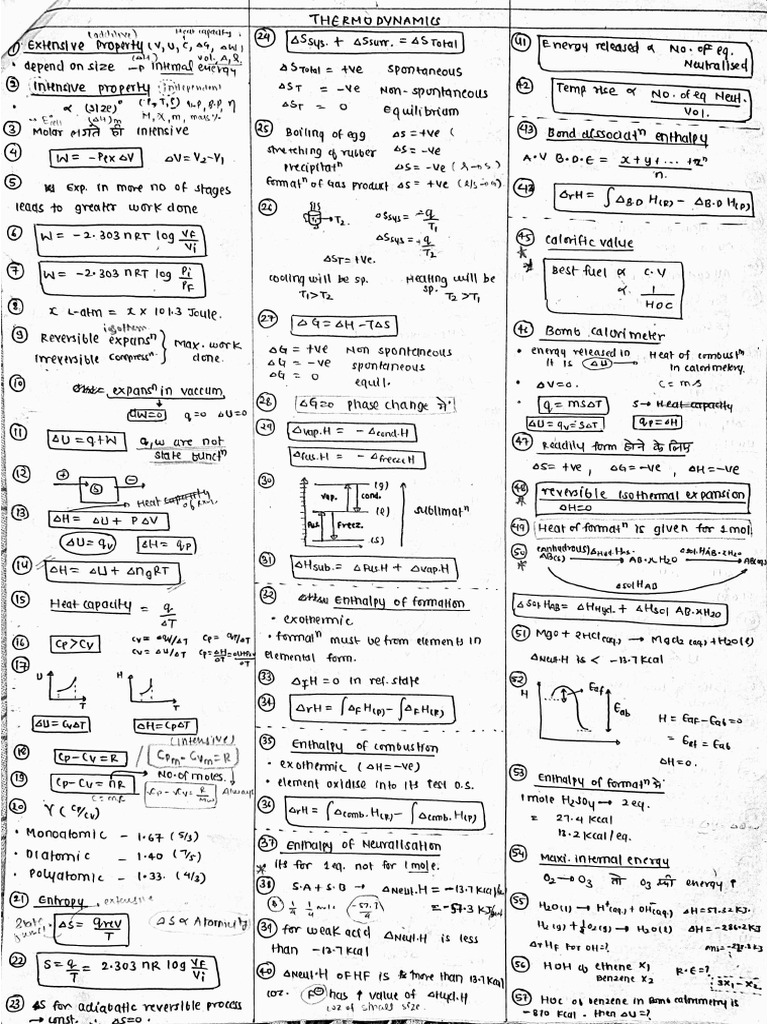 THERMODYNAMICS
(additive) Heat capacity,
① Extensive Property (V, U, C, ΔG, ΔH,)
• depend on size → internal energy
② Intensive property (independent
• ∝ (size)⁰
③ Molar लगाते ही intensive
④ W = -Pex ΔV ΔV = V₂-V₁
⑤ Exp. in more no of stages
leads to greater work done
⑥ W = -2.303 nRT log Vf/Vi
⑦ W = -2.303 nRT log Pi/Pf
⑧ x L-atm = x × 101.3 Joule.
isotherm
⑨ Reversible expansⁿ } max. work
Irreversible compressⁿ } done.
⑩ expansⁿ in vaccum
W=0 q=0 ΔU=0
⑪ ΔU = q+W q,w are not
state functⁿ
⑫ + → S → -
Heat capacity
⑬ ΔH = ΔU + PΔV
ΔU = qv ΔH = qp
⑭ ΔH = ΔU + ΔngRT
⑮ Heat capacity = q/ΔT
⑯ Cp>Cv Cv = qv/ΔT Cp = qp/ΔT
Cv = ΔU/ΔT Cp = ΔH/ΔT
⑰ U T H T
ΔU = CvΔT ΔH = CpΔT
(intensive)
⑱ Cp-Cv=R Cpm - Cvm = R
⑲ Cp-Cv = nR No. of moles. Always
⑳ γ (Cp/Cv)
• Monoatomic - 1.67 (5/3)
• Diatomic - 1.40 (7/5)
• Polyatomic - 1.33 (4/3)
㉑ Entropy extensive
State funct ΔS = qrev/T ΔS ∝ Atomicity
㉒ S = q/T = 2.303 nR log Vf/Vi
㉓ ΔS for adiabatic reversible process
→ const. ∴ ΔS=0.
㉔ ΔSsys. + ΔSurr. = ΔSTotal
ΔSTotal = +ve spontaneous
ΔST = -ve Non-spontaneous
ΔST = 0 equilibrium
㉕ Boiling of egg ΔS = +ve
stretching of rubber ΔS = -ve
Precipitatⁿ ΔS = -ve
formatⁿ of Gas product ΔS = +ve
㉖ T₂ ΔSsys = -q/T₁
ΔSsys = +q/T₂
ΔST = +ve.
cooling will be sp. Heating will be sp.
T₁>T₂ T₂>T₁
㉗ ΔG = ΔH - TΔS
ΔG = +ve Non spontaneous
ΔG = -ve spontaneous
ΔG = 0 equil.
㉘ ΔG=0 phase change में
㉙ Δvap.H = -Δcond.H
Δfus.H = -ΔfreezeH
㉚ (g)
vap. cond.
(l) sublimatⁿ
Fus. Freez.
(s)
㉛ ΔHsub. = Δfus.H + Δvap.H
㉜ Enthalpy of formation
• exothermic
• formatⁿ must be from elements in
elemental form.
㉝ ΔfH = 0 in ref. state
㉞ ΔrH = ∫ΔfH(P) - ∫ΔfH(R)
㉟ Enthalpy of combustion
• exothermic (ΔH = -ve)
• element oxidise into its best O.S.
㊱ ΔrH = ∫Δcomb.H(R) - ∫Δcomb.H(P)
㊲ Enthalpy of Neuralisation
* its for 1eq. not for 1 mole.
㊳ S.A + S.B → ΔNeut.H = -13.7 Kcal/
= -57.3 KJ/
㊴ for weak acid ΔNeut.H is less
than -13.7 Kcal
㊵ ΔNeut.H of HF is more than 13.7 Kcal
coz. F⊖ has ↑ value of ΔHyd.H
coz of small size.
㊶ Energy released ∝ No. of eq.
Neutralised
㊷ Temp rise ∝ No. of eq Neut./Vol.
㊸ Bond dissociatⁿ enthalpy
A.V B.D.E = x+y+...+zⁿ/n.
ΔrH = ∫ΔB.D H(R) - ΔB.D H(P)
㊺ Calorific value
* Best fuel ∝ C.V
∝ 1/HOC
㊻ Bomb calorimeter
• energy released in it is ΔU Heat of combustⁿ in calorimetry.
• ΔV=0. C = ms
• q = msΔT S → Heat capacity
ΔU = qv = SΔT qp = ΔH
㊼ Readily form होने के लिए
ΔS = +ve, ΔG = -ve, ΔH = -ve
㊽ * reversible isothermal expansion
ΔH=0
㊾ Heat of formatⁿ is given for 1 mol
㊿ * (anhydrous) AB(s) → AB·xH₂O → AB(aq)
ΔsolHAB
ΔsolHAB = ΔHyd. + ΔHsol AB·xH₂O
51 MgO + 2HCl(aq.) → MgCl₂(aq) + H₂O(l)
ΔNeut.H is < -13.7 Kcal
52 H Eaf Eab
H = Eaf - Eab = 0
= Eaf = Eab
ΔH = 0.
53 Enthalpy of formatⁿ में
1 mole H₂SO₄ → 2 eq.
= 27.4 Kcal
13.2 Kcal/eq.
54 Maxi. internal energy
O₂ → O₃ तो O₃ की energy ↑
55 H₂O(l) → H⁺(aq) + OH⁻(aq) ΔH = 57.32 KJ
H₂(g) + ½O₂(g) → H₂O(l) ΔH = -286.2 KJ
ΔfHf for OH = ?
56 HOH of ethene x₁ R.E = ?
benzene x₂ 3x₁ - x₂
57 HOC of benzene in Bomb calorimetry is
-870 Kcal. then ΔU = ?